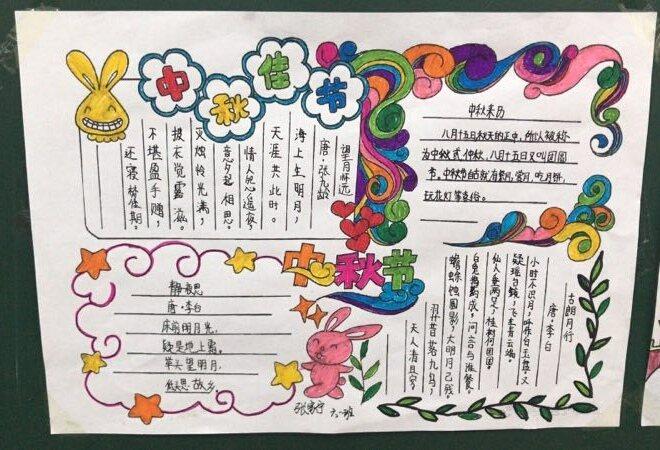 中秋佳节
望月怀远
唐·张九龄
海上生明月，
天涯共此时。
情人怨遥夜，
意夕起相思。
灭烛怜光满，
披衣觉露滋。
不堪盈手赠，
还寝梦佳期。
中秋来历
八月十五日秋天的正中，所以被称
为中秋或仲秋，八月十五又叫团圆
节。中秋节自古就有祭月、赏月、吃月饼、
玩花灯等习俗。
中秋节
静夜思
唐·李白
床前明月光，
疑是地上霜。
举头望明月，
低头思故乡
古朗月行
唐·李白
小时不识月，呼作白玉盘。又
疑瑶台镜，飞在青云端。
仙人垂两足，桂树何团团。
白兔捣药成，问言与谁餐。
蟾蜍蚀圆影，大明月已残。
羿昔落九乌，
天人清且安。
六一班